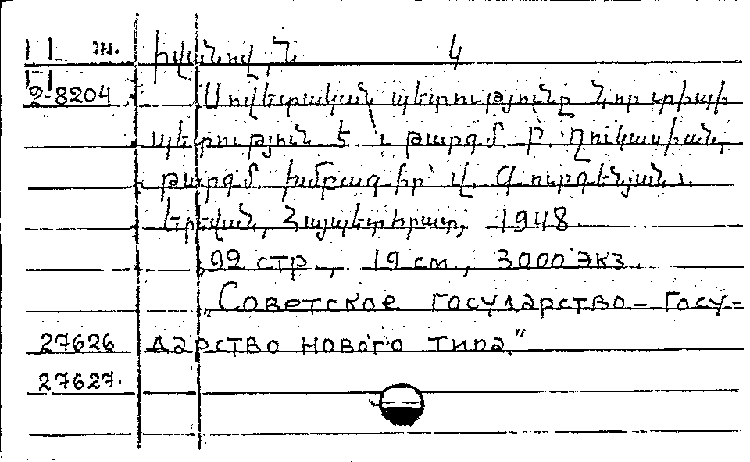 Իվանով, Ն. 4
2-8204 Սովետական պետությունը նոր տիպի
պետություն է, թարգմ. Բ. Ղուկասյան,
թարգմ. խմբագիր՝ Վ. Գուրգենյան.
Երևան, Հայպետհրատ, 1948.
99 стр., 19 см., 3000 экз.
„Советское государство – госу-
27626 дарство нового типа."
27627.